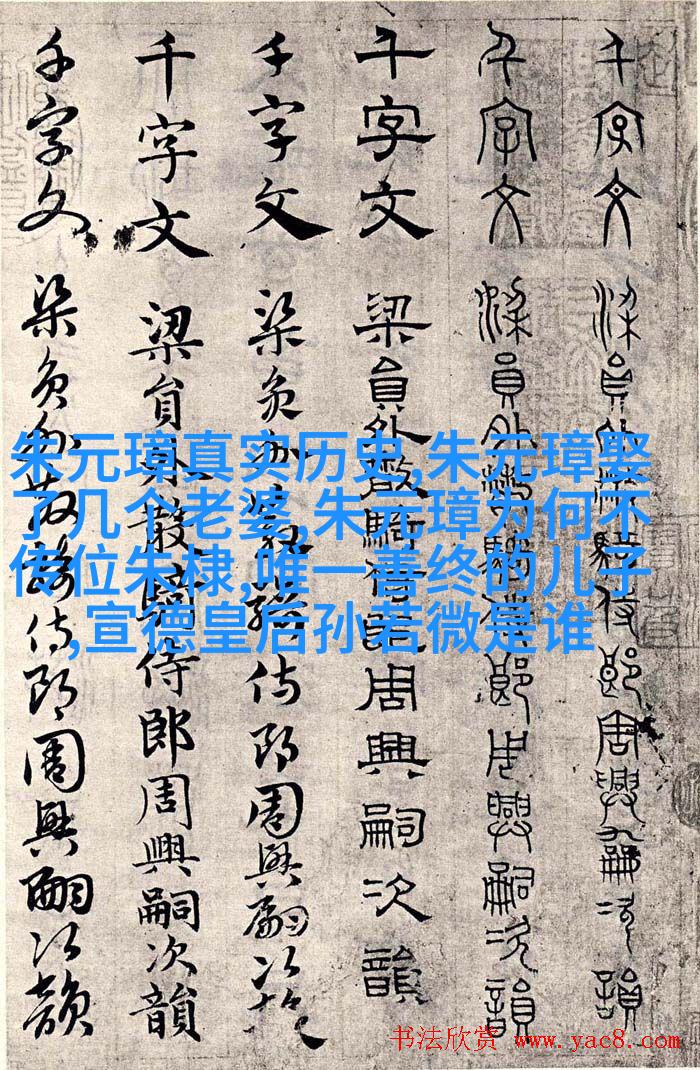 千字文 梁員外散騎侍郎周興嗣次韻
千字文 梁員外散騎侍郎周興嗣次韻
千字文 梁員外散騎侍郎周興嗣次韻
千字文 梁員外散騎侍郎周興嗣次韻
千字文 梁員外散騎侍郎周興嗣次韻
千字文 梁員外散騎侍郎周興嗣次韻
朱元璋真实历史,朱元璋娶
了几个老婆,朱元璋为何不
传位朱棣,唯一善终的儿子
,宣德皇后孙若微是谁
书法欣赏 www.yac8.com